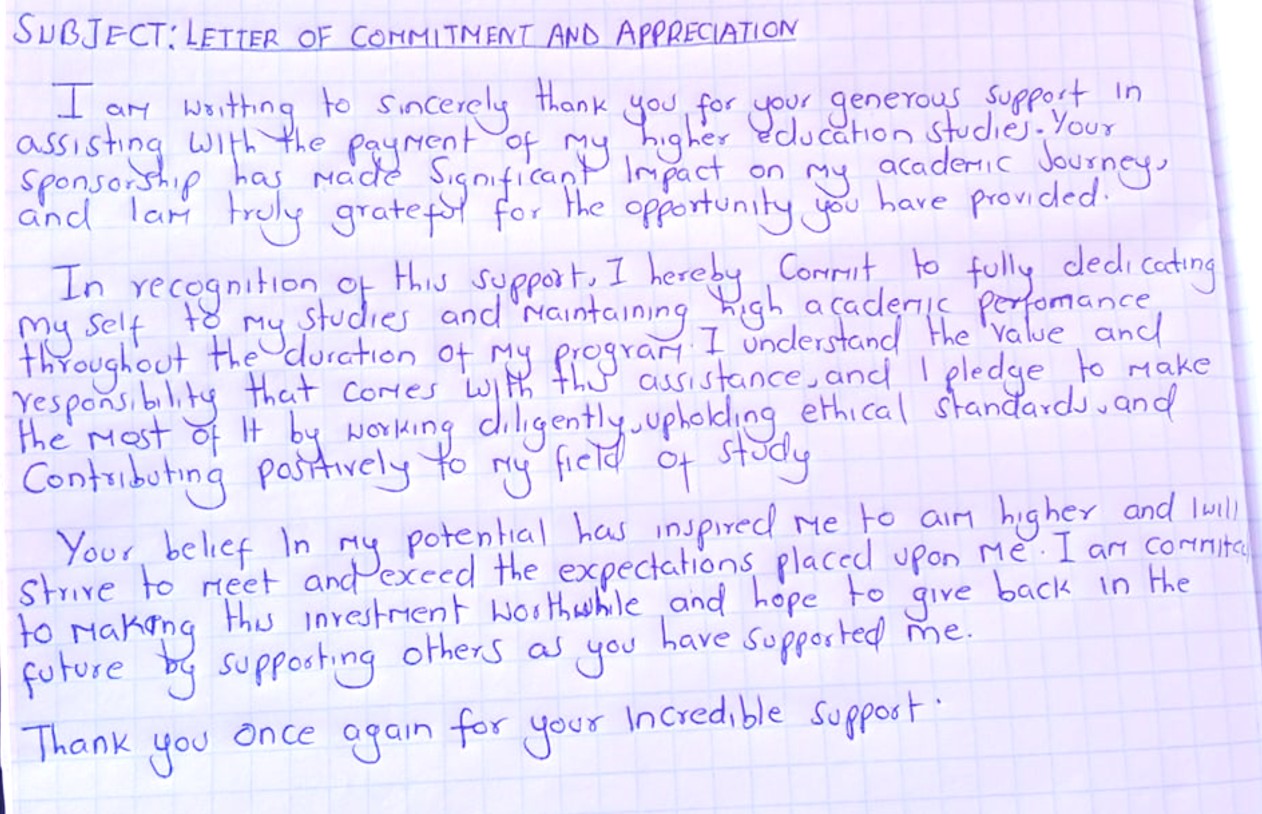 SUBJECT: LETTER OF COMMITMENT AND APPRECIATION
I am writting to sincerely thank you for your generous support in
assisting with the payment of my higher education studies. Your
sponsorship has made significant impact on my academic Journey,
and I am truly grateful for the opportunity you have provided.
In recognition of this support, I hereby Commit to fully dedicating
my self to my studies and maintaining high academic perfomance
throughout the duration of my program. I understand the value and
responsibility that comes with this assistance, and I pledge to make
the most of it by working diligently, upholding ethical standards, and
Contributing positively to my field of study
Your belief in my potential has inspired me to aim higher and I will
strive to meet and exceed the expectations placed upon me. I am commited
to making this investment worthwhile and hope to give back in the
future by supporting others as you have supported me.
Thank you once again for your incredible support.